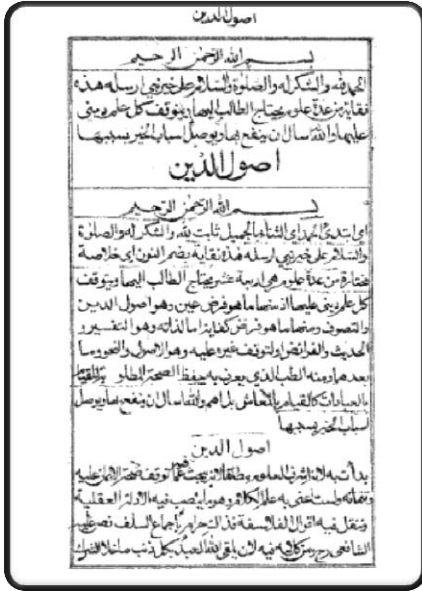 اصول الدين
بسم الله الرحمن الرحيم
الحمد لله والشكر له والصلوة والسلام على خير نبي ارسله هذه
نقاية من عدة علوم يحتاج الطالب اليها ويتوقف كل علم ديني
عليها والله اسال ان ينفع بها ويوصل اسباب الخير بسببها
اصول الدين
بسم الله الرحمن الرحيم
اي ابتدئ الحمد اي الثناء بالجميل ثابت لله والشكر له والصلوة
والسلام على خير نبي ارسله هذه نقاية بضم النون اي خلاصة
مختارة من عدة علوم هي اربعة عشر يحتاج الطالب اليها ويتوقف
كل علم ديني عليها اذ منها ما هو فرض عين وهو اصول الدين
والتصوف ومنها ما هو فرض كفاية اما لذاته وهو التفسير و
الحديث والفرائض او لتوقف غيره عليه وهو الاصول والنحو وما
بعدهما ومنه الطب الذي يعرف به حفظ الصحة المطلوبة للقيام
بالعبادات كالقيام بالمعاش بل اهم والله اسال ان ينفع بها ويوصل
اسباب الخير بسببها
اصول الدين
بدأت به لانه اشرف العلوم مطلقا لانه يبحث عما تتوقف صحة الايمان عليه
وتتماته ولست اعني به علم الكلام وهو ما ينصب فيه الادلة العقلية
وتنقل فيه اقوال الفلاسفة فذاك حرام باجماع السلف نص عليه
الشافعي رح ومن كلامه فيه لان يلقى الله العبد بكل ذنب ما خلا الشرك